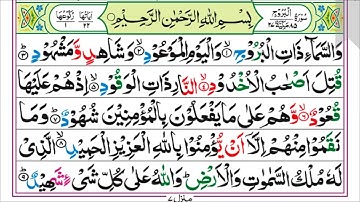 سُوْرَةُ الْبُرُوْجِ
بِسْمِ اللّٰهِ الرَّحْمٰنِ الرَّحِيْمِ
وَالسَّمَآءِ ذَاتِ الْبُرُوْجِ ۙ﴿۱﴾ وَالْيَوْمِ الْمَوْعُوْدِ ۙ﴿۲﴾ وَشَاهِدٍ وَّمَشْهُوْدٍ ؕ﴿۳﴾
قُتِلَ اَصْحٰبُ الْاُخْدُوْدِ ۙ﴿۴﴾ النَّارِ ذَاتِ الْوَقُوْدِ ۙ﴿۵﴾ اِذْ هُمْ عَلَيْهَا
قُعُوْدٌ ۙ﴿۶﴾ وَّهُمْ عَلٰى مَا يَفْعَلُوْنَ بِالْمُؤْمِنِيْنَ شُهُوْدٌ ؕ﴿۷﴾ وَمَا
نَقَمُوْا مِنْهُمْ اِلَّاۤ اَنْ يُّؤْمِنُوْا بِاللّٰهِ الْعَزِيْزِ الْحَمِيْدِ ۙ﴿۸﴾ الَّذِيْ
لَهٗ مُلْكُ السَّمٰوٰتِ وَالْاَرْضِ ؕ وَاللّٰهُ عَلٰى كُلِّ شَيْءٍ شَهِيْدٌ ؕ﴿۹﴾
منزل ۷